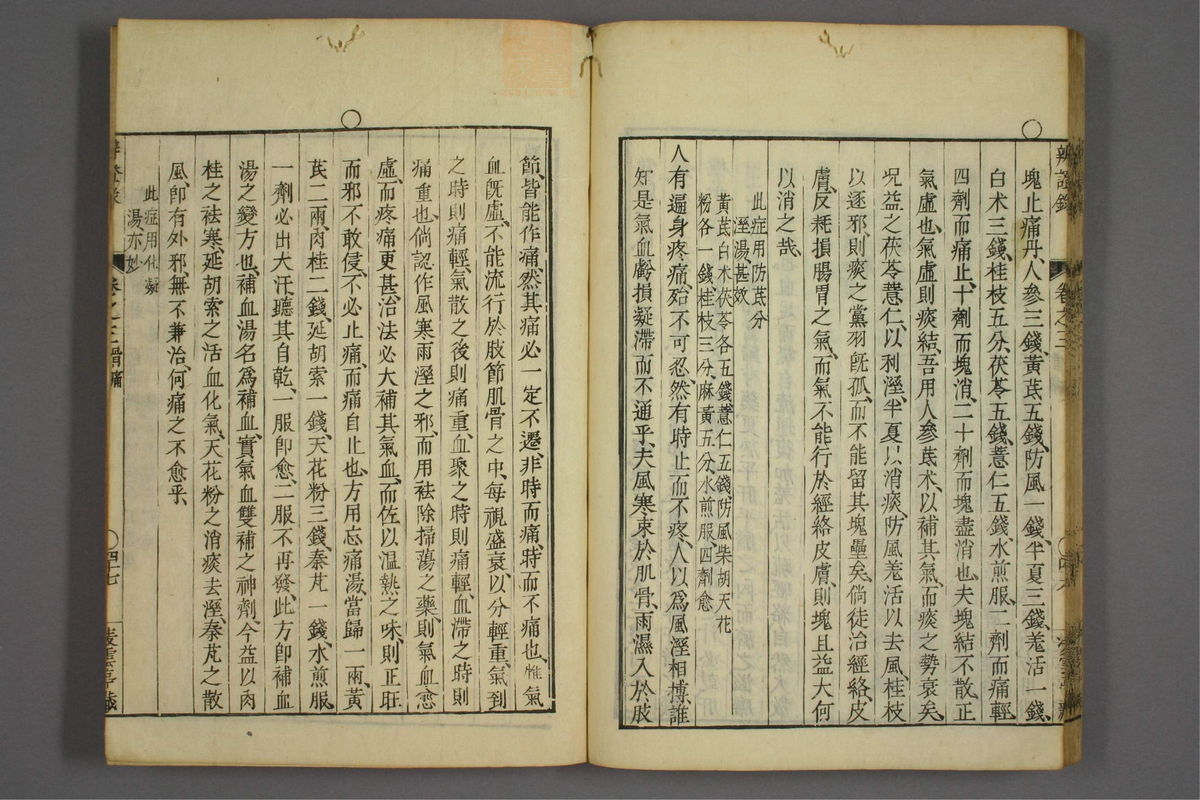 辨證錄
卷之三
塊止痛丹、人參三錢、黃茋五錢、防風一錢、半夏三錢、羗活一錢、
白术三錢、桂枝五分、茯苓五錢、薏仁五錢、水煎服、一劑而痛輕、
四劑而痛止、十劑而塊消、二十劑而塊盡消也、夫塊結不散、正
氣虛也、氣虛則痰結、吾用人參茋术、以補其氣、而痰之勢衰矣、
況益之茯苓薏仁、以利溼、半夏以消痰、防風羗活以去風、桂枝
以逐邪、則痰之黨羽旣孤、而不能留其塊壘矣、倘徒治經絡、皮
膚、反耗損腸胃之氣、而氣不能行於經絡皮膚、則塊且益大、何
以消之哉、
此症用防茋分
溼湯甚效
黃茋白术茯苓各五錢薏仁五錢防風柴胡天花
粉各一錢桂枝三分、麻黃五分、水煎服、四劑愈
人有遍身疼痛、殆不可忍、然有時止而不疼、人以爲風溼相搏、誰
知是氣血虧損凝滯而不通乎、夫風寒束於肌骨、雨濕入於肢
節、皆能作痛、然其痛必一定不遷、非時而痛、時而不痛也、惟氣
血旣虛、不能流行於肢節肌骨之中、每視盛衰、以分輕重、氣到
之時則痛輕、氣散之後則痛重、血聚之時則痛輕、血滯之時則
痛重也、倘認作風寒雨溼之邪、而用袪除掃蕩之藥、則氣血愈
虛、而疼痛更甚、治法必大補其氣血、而佐以温熱之味、則正旺
而邪不敢侵、不必止痛、而痛自止也、方用忘痛湯、當歸一兩、黃
茋二兩、肉桂二錢、延胡索一錢、天花粉三錢、秦艽一錢、水煎服、
一劑必出大汗、聽其自乾、一服卽愈、二服不再發、此方卽補血
湯之變方也、補血湯名爲補血、實氣血雙補之神劑、今益以肉
桂之袪寒、延胡索之活血化氣、天花粉之消痰去溼、秦艽之散
風卽有外邪、無不兼治、何痛之不愈乎、
此症用化凝
湯、亦妙
卷之三
四十七